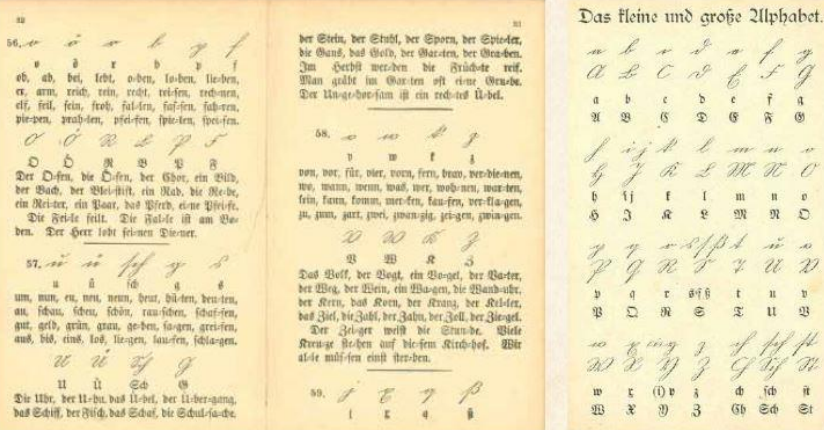 32
56. o ö r b p f
o ö r b p f
ob, ab, bei, lebt, o=ben, lo=ben, lie=ben,
er, arm, reich, rein, recht, rei=sen, rech=nen,
elf, feil, fein, froh, fal=len, fas=sen, fah=ren,
pie=pen, prah=len, pfei=fen, spie=len, spei=sen.
O Ö R B P F
O Ö R B P F
Der O=fen, die Ö=fen, der Chor, ein Bild,
der Bach, der Blei=stift, ein Rad, die Re=be,
ein Rei=ter, ein Paar, das Pferd, ei=ne Pfei=fe.
Die Fei=le feilt. Die Fal=le ist am Bo=
den. Der Herr lobt sei=nen Die=ner.
57. u ü sch g s
u ü sch g s
um, nun, eu, neu, neun, heut, hü=ten, deu=ten,
au, schau, scheu, schön, rau=schen, schaf=fen,
gut, geld, grün, grau, ge=ben, sa=gen, grei=fen,
aus, bis, eins, los, lie=gen, lau=fen, schla=gen.
U Ü Sch G
U Ü Sch G
Die Uhr, der U=hu, das Ü=bel, der Ü=ber=gang,
das Schiff, der Fisch, das Schaf, die Schul=sa=che.
33
der Stein, der Stuhl, der Sporn, der Spie=ler,
die Gans, das Gold, der Gar=ten, der Gra=ben.
Im Herbst wer=den die Früch=te reif.
Man gräbt im Gar=ten oft ei=ne Gru=be.
Der Un=ge=hor=sam ist ein rech=tes Ü=bel.
58. v w k z
v w k z
von, vor, für, vier, vorn, fern, brav, ver=die=nen,
wo, wann, wenn, was, wer, woh=nen, war=ten,
kein, kann, komm, mer=ken, kau=fen, ver=kla=gen,
zu, zum, zart, zwei, zwan=zig, zei=gen, zwin=gen.
V W K Z
V W K Z
Das Volk, der Vogt, ein Vo=gel, der Va=ter,
der Weg, der Wein, ein Wa=gen, die Wand=uhr,
der Kern, das Korn, der Kranz, der Kel=ler,
das Ziel, die Zahl, der Zahn, der Zoll, der Zie=gel.
Der Zei=ger weist die Stun=de. Viele
Kreu=ze ste=hen auf die=sem Kirch=hof. Wir
al=le müs=sen einst ster=ben.
59. j x q ß
j x q ß
Das kleine und große Alphabet.
a b c d e f g
A B C D E F G
a b c d e f g
A B C D E F G
h i j k l m n o
H J K L M N O
h ij k l m n o
H J K L M N O
p q r s ſ ß t u v
P Q R S T U V
p q r sſß t u v
P Q R S T U V
w x (i)y z ch sch st
W X Y Z Ch Sch St
w x (i) y z ch sch st
W X Y Z Ch Sch St